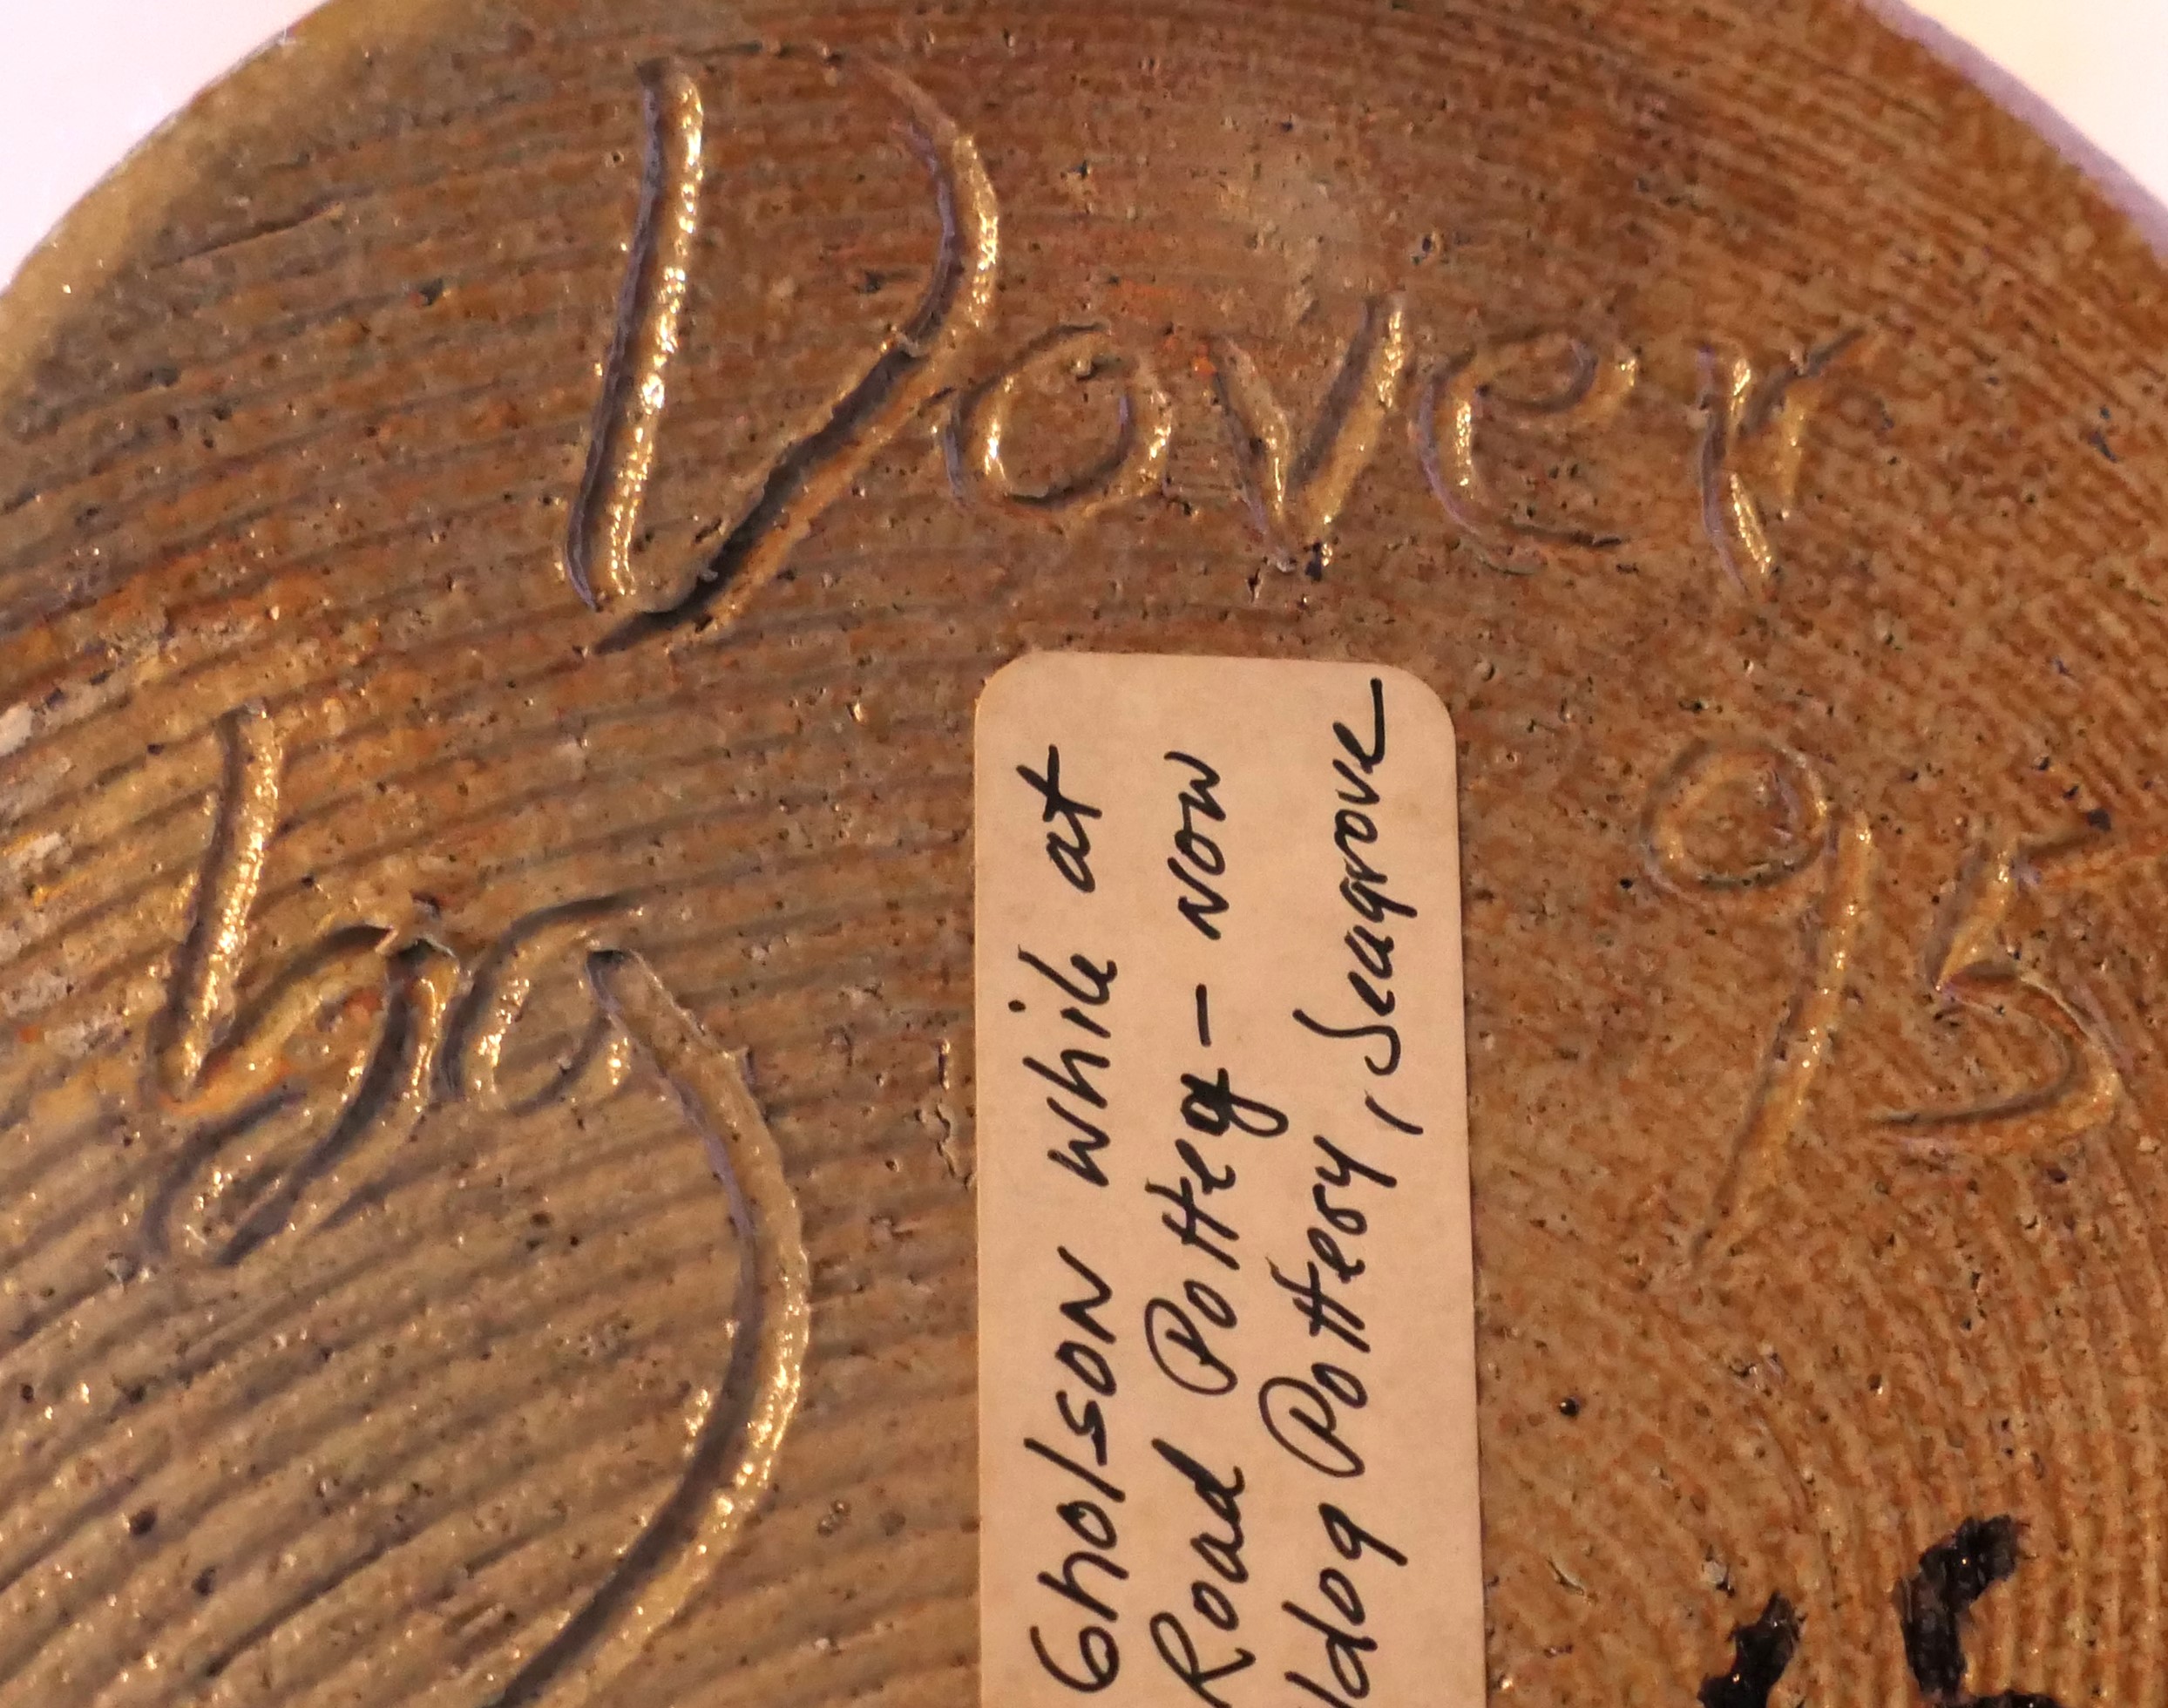 Dover
by
95
Gholson while at
Road Pottery - Now
ldog Pottery, Seagrove